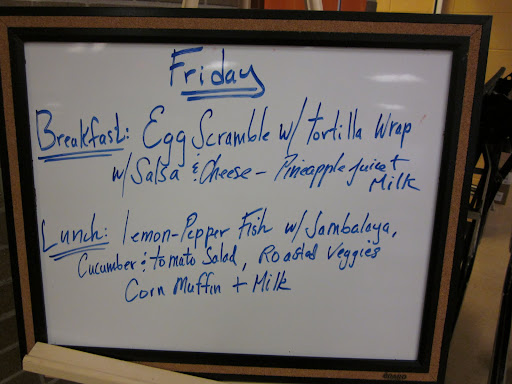 Friday
Breakfast: Egg Scramble w/ tortilla Wrap
w/ Salsa & Cheese - Pineapple juice +
Milk
Lunch: lemon-Pepper Fish w/ Jambalaya,
Cucumber & tomato Salad, Roasted Veggies
Corn Muffin + Milk